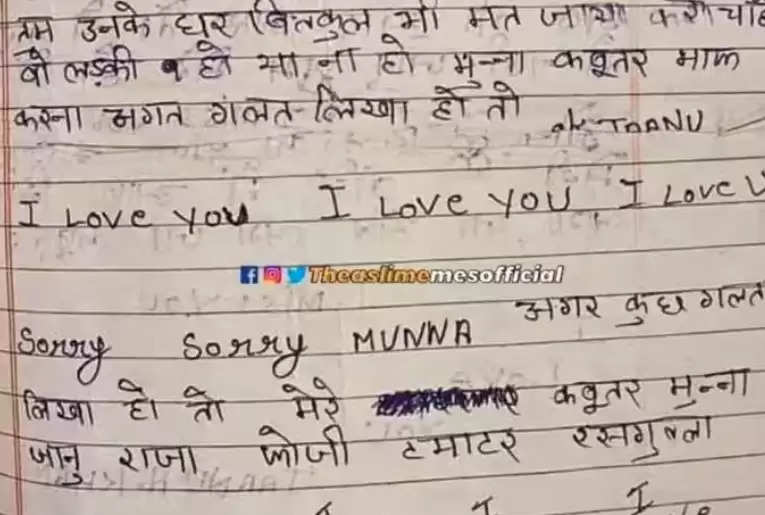 तुम उनके घर बिलकुल भी मत जाया करो चाहे
वो लड़की हो या ना हो मुन्ना कबूतर माफ
करना अगत गलत लिखा हो तो ok JAANU
I Love you I Love you I Love U
Theaslimemesofficial
Sorry Sorry MUNNA अगर कुछ गलत
लिखा हो तो मेरे कबूतर मुन्ना
जानु राजा फोजी टमाटर रसगुल्ला
I I I